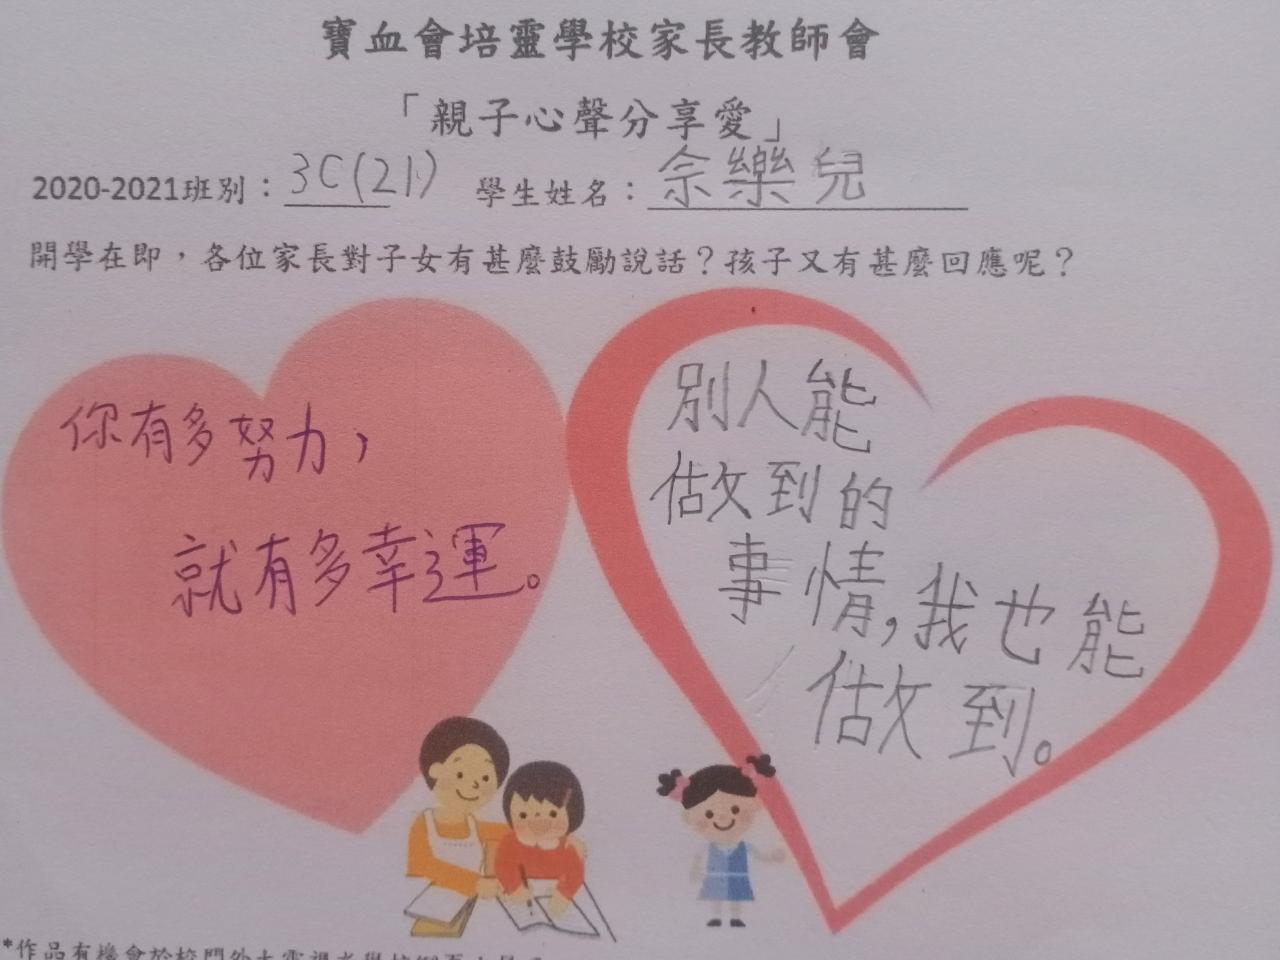 寶血會培靈學校家長教師會
「親子心聲分享愛」
2020-2021班別：3C(21) 學生姓名：佘樂兒
開學在即，各位家長對子女有甚麼鼓勵說話？孩子又有甚麼回應呢？
你有多努力，
就有多幸運。
別人能
做到的
事情,我也能
做到。
*作品有機會於校門外大電視或學校網頁